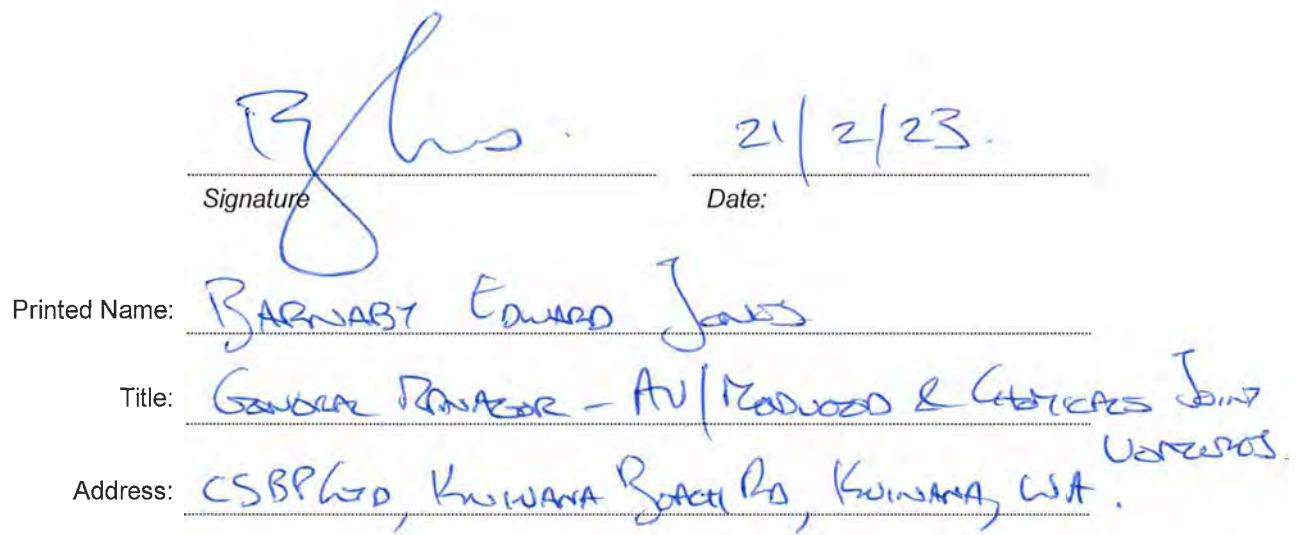 21/2/23.
Signature Date:
Printed Name: BARNABY EDWARD JONES
Title: GENERAL MANAGER - AN/ & CHEMICALS JOINT
VENTURES.
Address: CSBP LTD, KWINANA BEACH RD, KWINANA, WA.